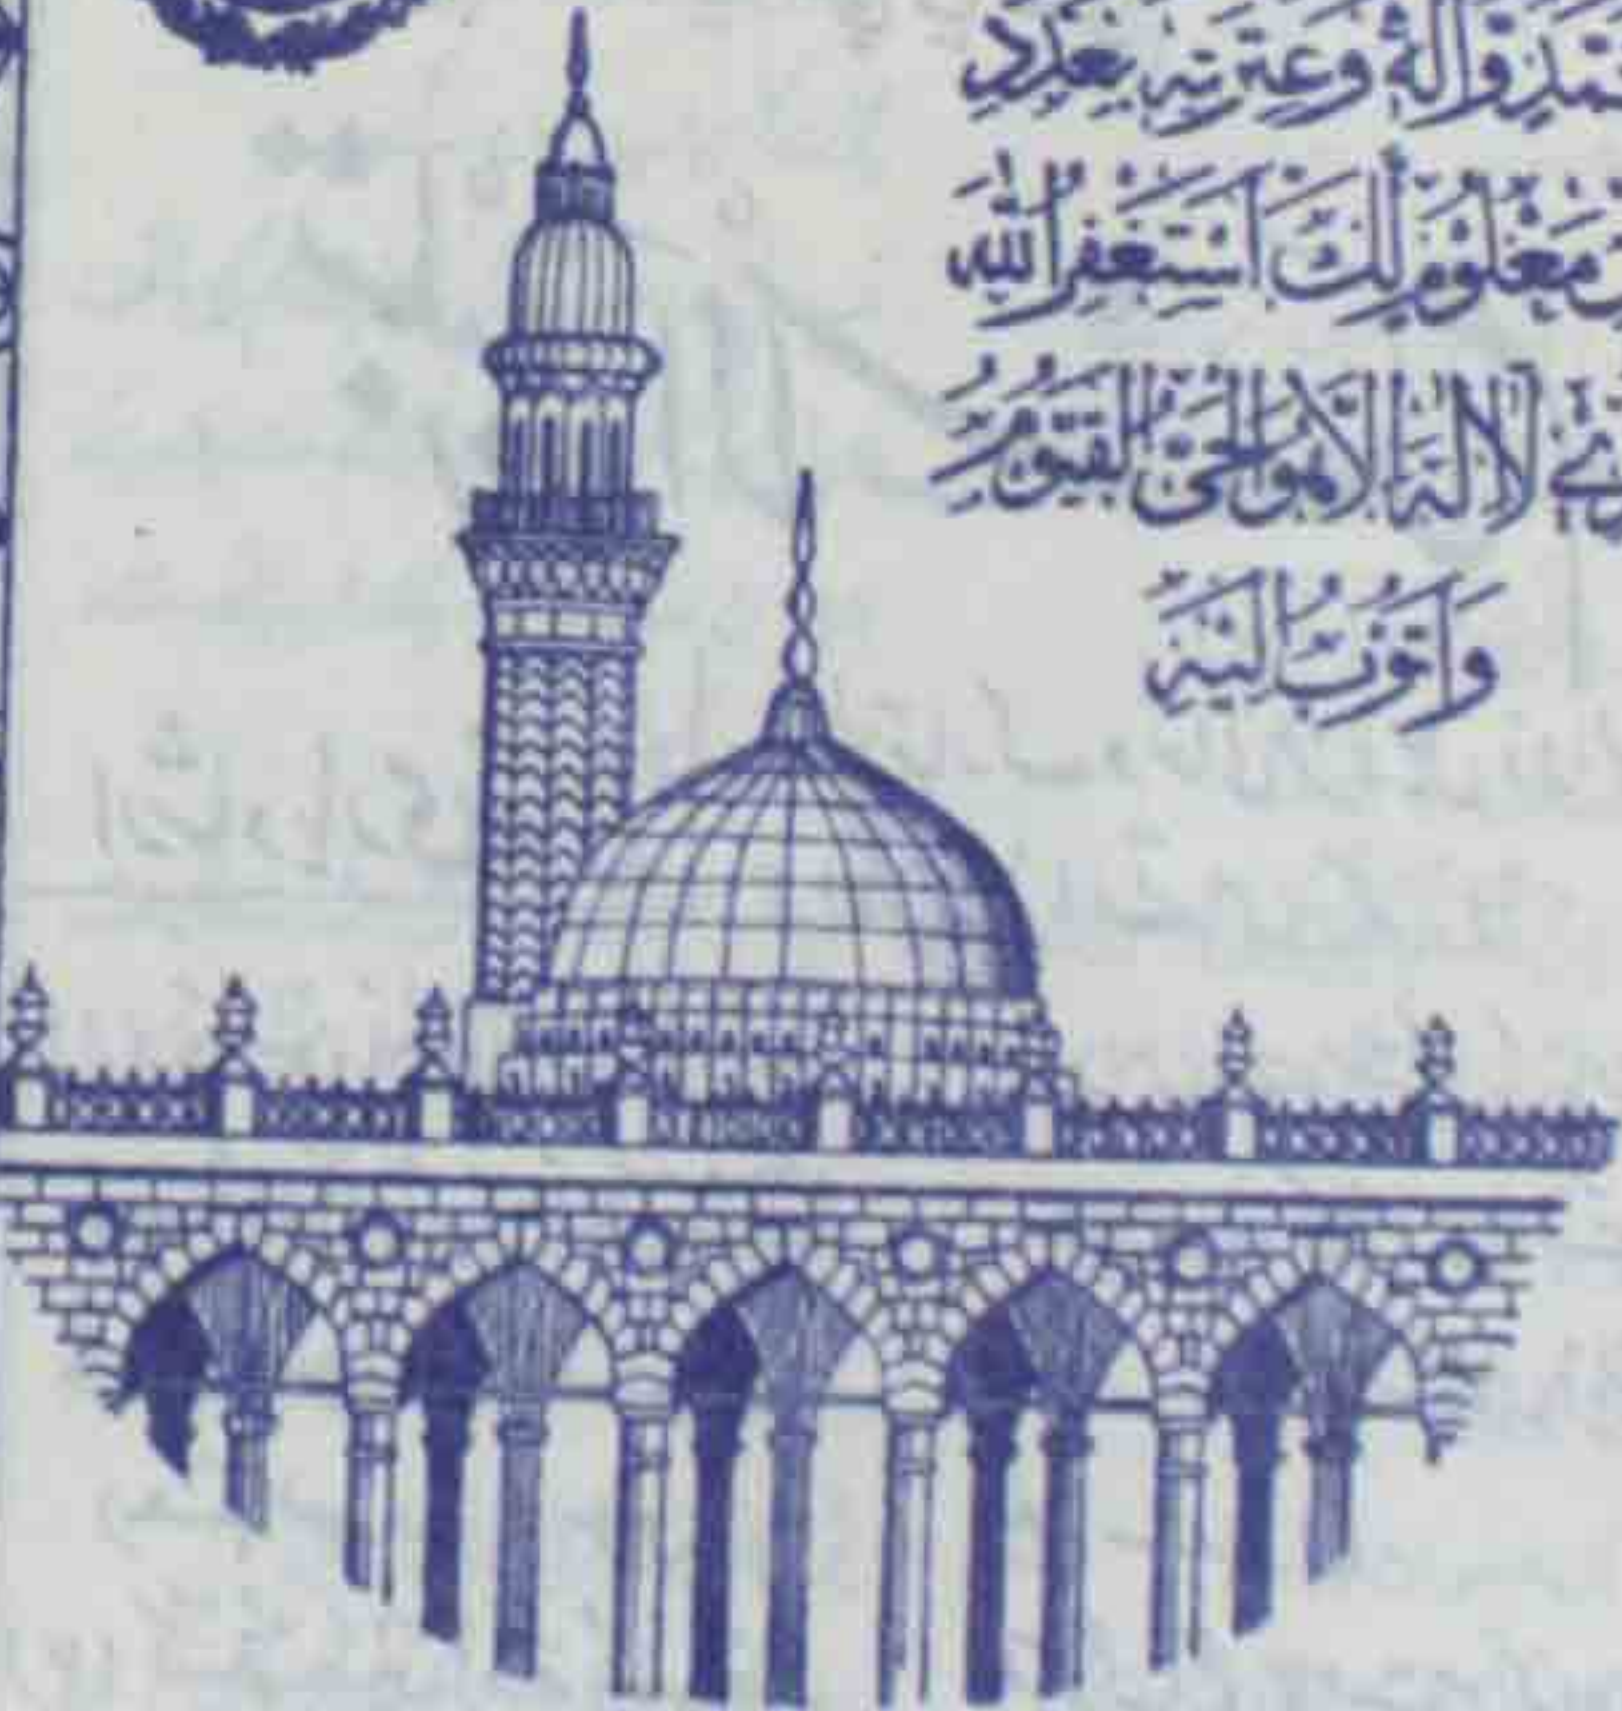 وَاٰلِهٖ وَعِتْرَتِهٖ بِعَدَدِ
مَعْلُوْمٍ لَّكَ اَسْتَغْفِرُ اللّٰهَ
لَآ اِلٰهَ اِلَّا هُوَ الْحَيُّ الْقَيُّوْمُ
وَاَتُوْبُ اِلَيْهِ